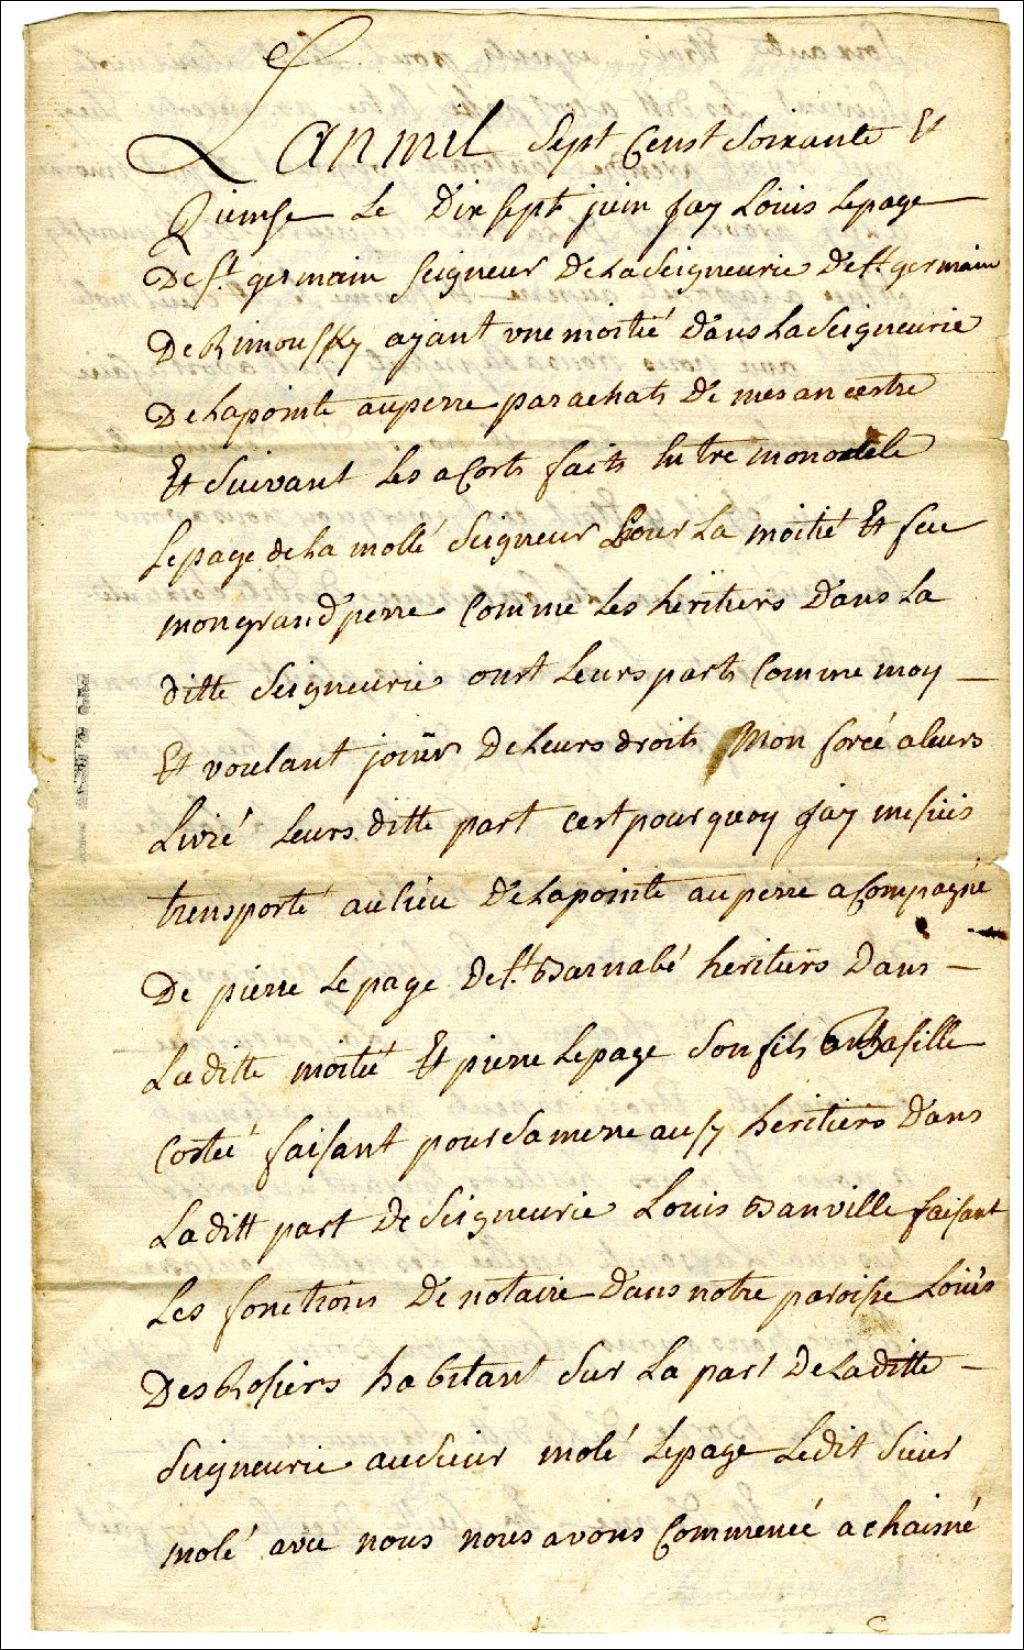 L anmil Sept Censt Soixante Et
Quinse Le Dix sept juin Jay Loüis Lepage
De st. germain seigneur De La Seigneurie De st. germain
De Rimousky ayant vne moitié Dans La Seigneurie
De Lapointe auperre par achats De mes ancestre
Et Suivant Les acorts faits Entre mononcle
Lepage de La mollé Seigneur Pour La moitié Et feu
mongrandperre Comme Les heritiers Dans La
ditte Seigneurie onst Leurs parts Comme moy
Et voulant joüir De Leurs droits Mon forcé a Leurs
Livré Leurs ditte part cest pour quoy Jay me suis
trensporté au lieu De Lapointe au perre a Compagné
De pierre Lepage De st. Barnabé heritiers Dans
La ditte moitié Et pierre Lepage Son fils Basille
Costé faisant pour Sa merre ausy heritiers Dans
La ditt part De Seigneurie Louis Banville faisant
Les fonctions De notaire Dans notre paroisse Loüis
Des Rosiers habitant Sur La part De La ditte
Seigneurie au Sieur molé Lepage Ledit Sieur
molé avec nous nous avons Commencé a chaisné